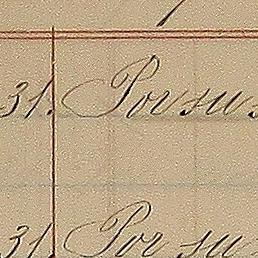 31. Por sus
31. Por su